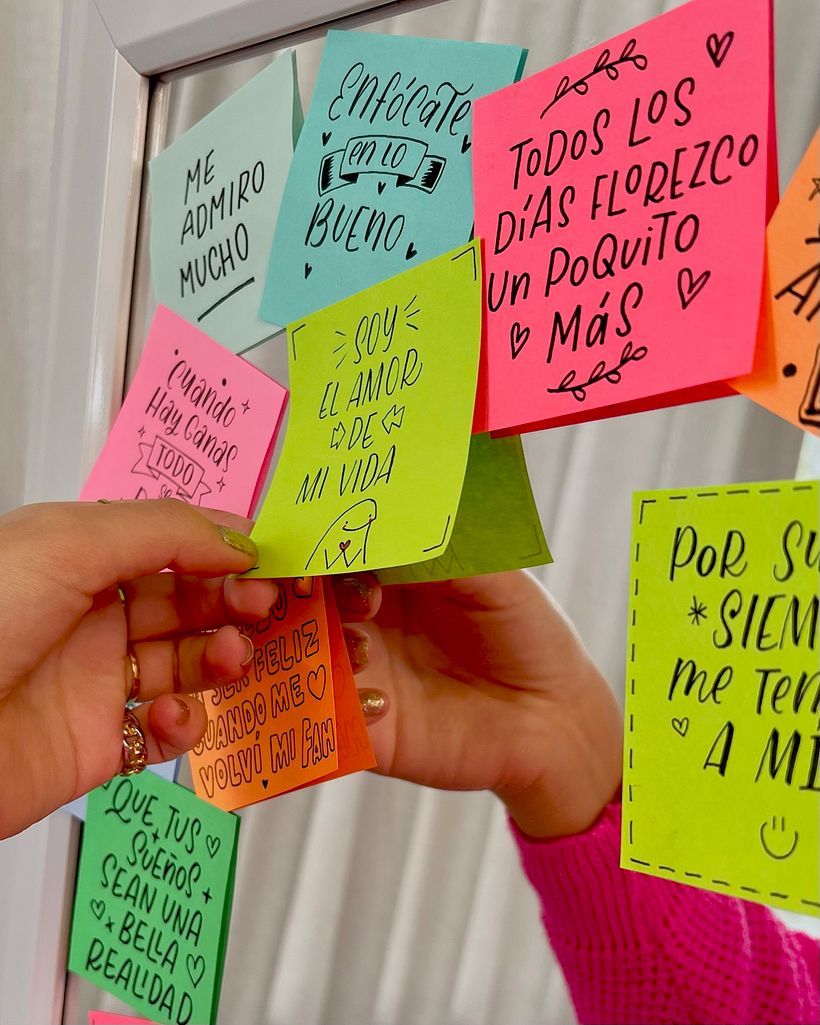 ME
ADMIRO
MUCHO
ENFÓCATE
EN LO
BUENO
TODOS LOS
DÍAS FLOREZCO
UN POQUITO
MÁS
CUANDO
HAY GANAS
TODO
SOY
EL AMOR
DE
MI VIDA
SER FELIZ
CUANDO ME
VOLVÍ MI FAN
POR SU
*SIEM
ME TEN
A MÍ
QUE TUS
SUEÑOS
SEAN UNA
BELLA
REALIDAD